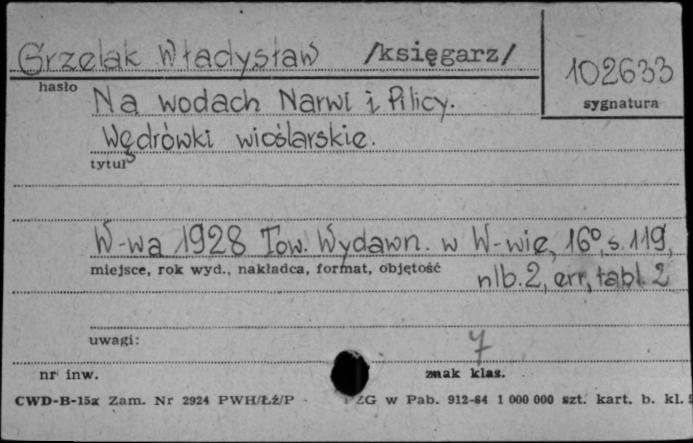 Grzelak Władysław /księgarz/
102633
hasło
sygnatura
Na wodach Narwi i Pilicy.
Wędrówki wioślarskie.
tytuł
W-wa 1928 Tow. Wydawn. w W-wie, 16°, s. 119,
miejsce, rok wyd., nakładca, format, objętość
nlb. 2, err, tabl. 2
uwagi:
7
nr inw.
znak klas.
CWD-B-15a Zam. Nr 2924 PWH/Łż/P ZG w Pab. 912-64 1 000 000 szt. kart. b. kl.